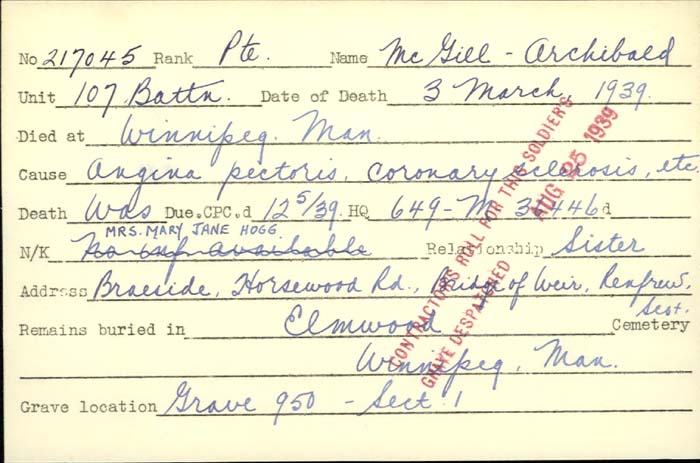 No 217045 Rank Pte. Name Mc Gill - Archibald
Unit 107 Battn. Date of Death 3 March, 1939.
Died at Winnipeg. Man.
Cause Angina pectoris, coronary sclerosis, etc.
Death Was Due.CPC.d 12 5/39. HQ 649-M 31446 d
MRS. MARY JANE HOGG
N/K No inf. available Relationship Sister
Address Braeside, Horsewood Rd., Bridge of Weir, Renfrew, Scot.
Remains buried in Elmwood Cemetery
Winnipeg, Man.
Grave location Grave 950 - Sect. 1
CONTRACTORS ROLL FOR THIS SOLDIER'S
GRAVE DESPATCHED AUG 25 1939